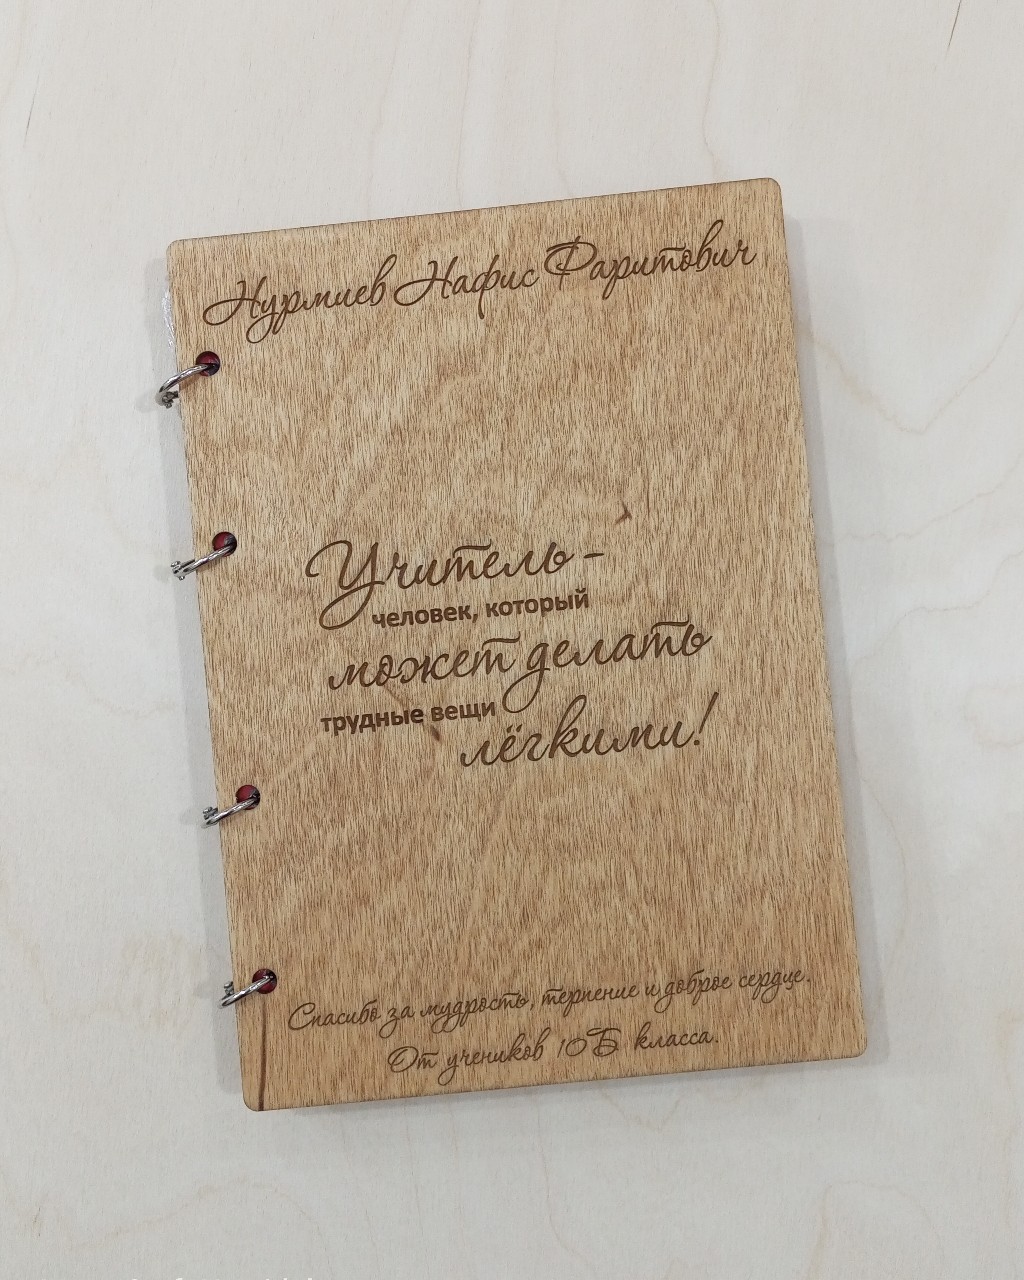 Нурмиев Нафис Фаритович
Учитель -
человек, который
может делать
трудные вещи
лёгкими!
Спасибо за мудрость, терпение и доброе сердце.
От учеников 10Б класса.